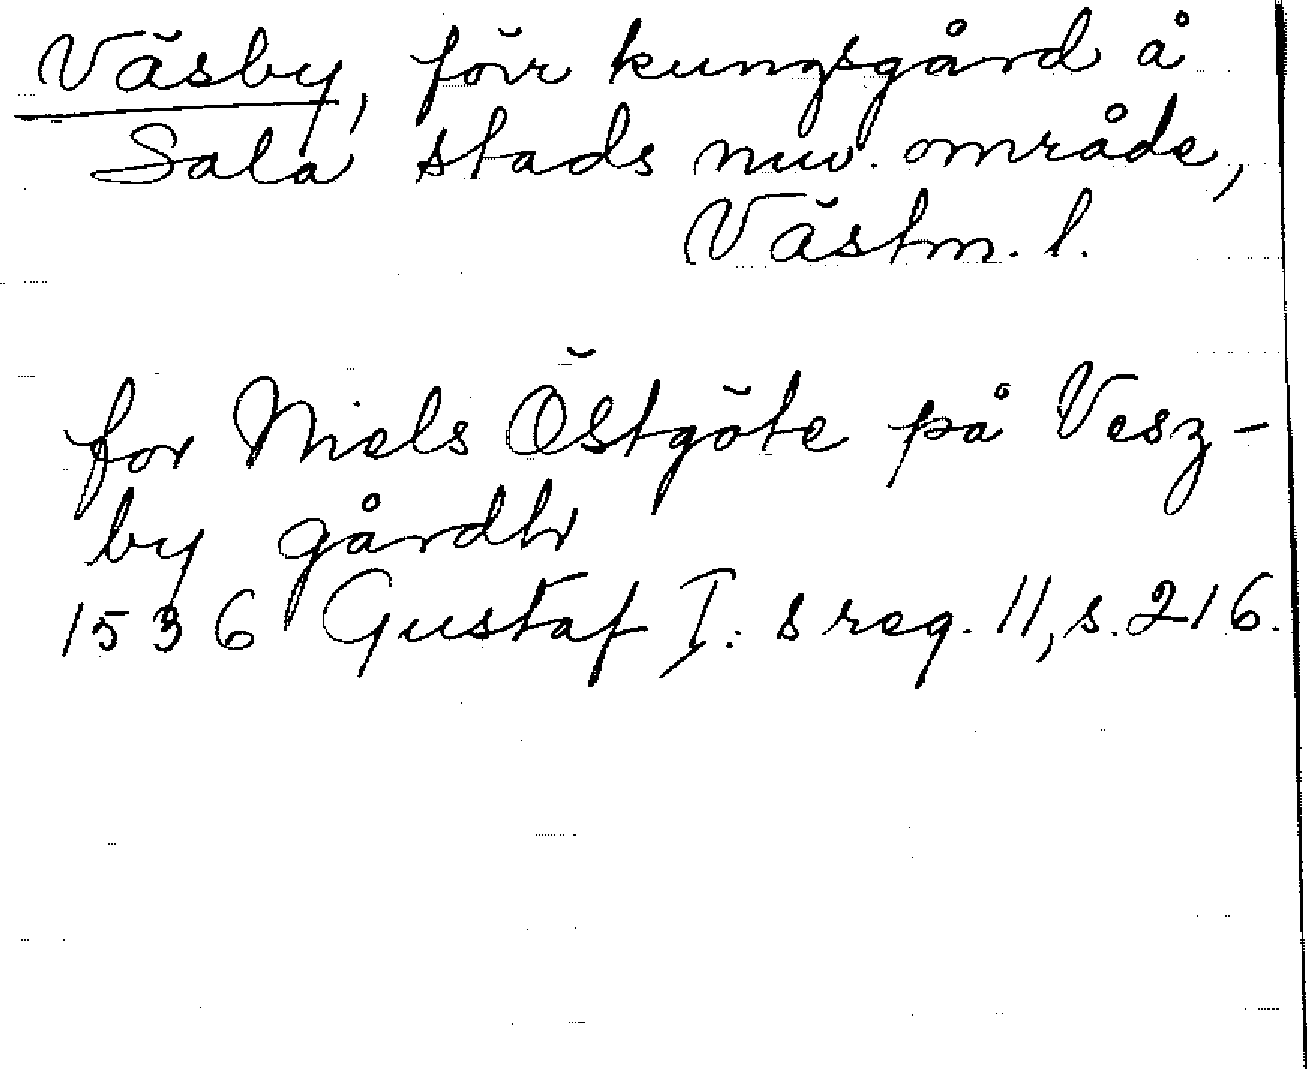 Väsby, förr kungsgård å
Sala stads nuv. område,
Västm. l.
for Niels Östgöte på Vesz-
by gårdh
1536 Gustaf I:s reg. 11, s. 216.